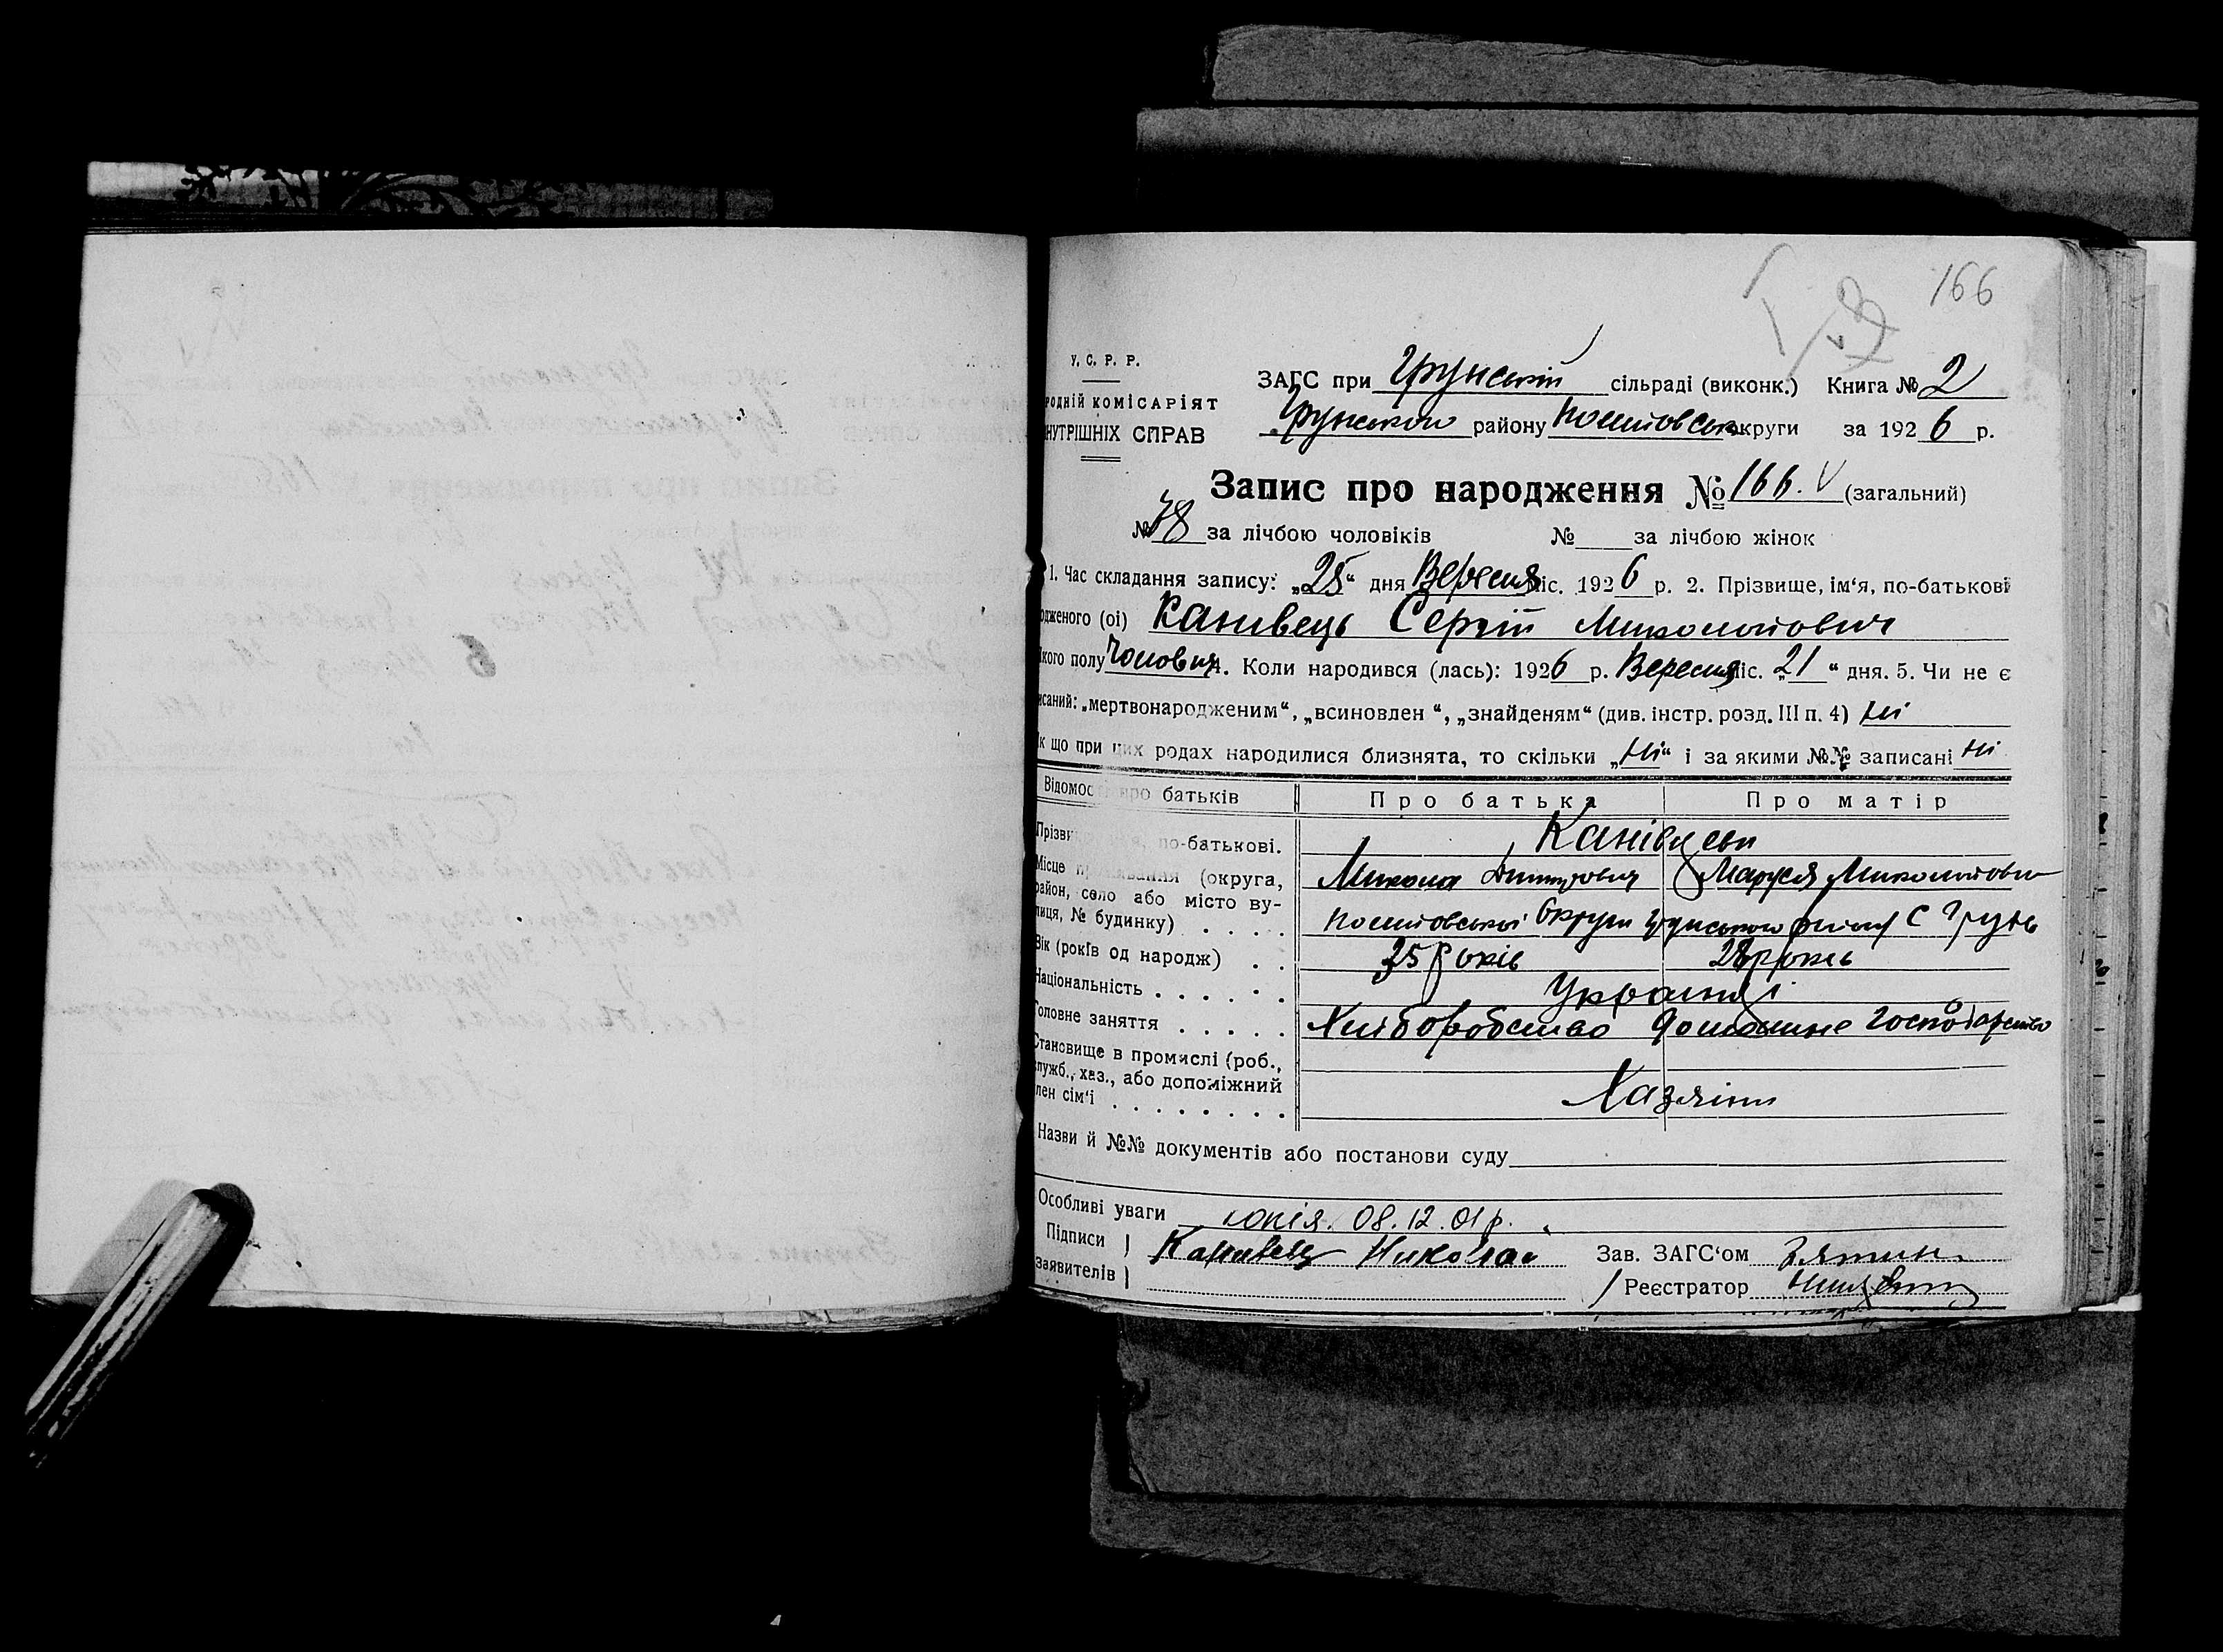 166
У. С. Р. Р.
ЗАГС при Грунській сільраді (виконк.) Книга № 2
родній комісаріят
нутрішніх справ
Грунського району округи за 1926 р.
Запис про народження № 166. V (загальний)
№ 78 за лічбою чоловіків № за лічбою жінок
1. Час складання запису: „25“ дня Вересня міс. 1926 р. 2. Прізвище, ім‘я, по-батькові
одженого (ої) Канивець Сергій Миколайович
якого полу Чоловіч 4. Коли народився (лась): 1926 р. Вересня міс. „21“ дня. 5. Чи не є
исаний: „мертвонародженим“, „всиновлен “, „знайденям“ (див. інстр. розд. III п. 4) Ні
к що при цих родах народилися близнята, то скільки „Ні“ і за якими №№ записані Ні
Відомості про батьків Про батька Про матір
Прізви по-батькові. Канівуськи
Микола Дмитрович Маруся Миколаївн
Місце (округа, район, село або місто вулиця, № будинку) . . . . Округи району С Грунь
Вік (років од народж) . . 35 років 28 років
Національність . . . . . . Українці
Головне заняття . . . . . Хліборобство Домашне господарство
Становище в промислі (роб., служб., хаз., або допоміжний
лен сім‘ї . . . . . . . . Хазяїни
Назви й №№ документів або постанови суду
Особливі уваги копія. 08.12.01р.
Підписи заявителів Канивец Николай
Зав. ЗАГС‘ом
Реєстратор